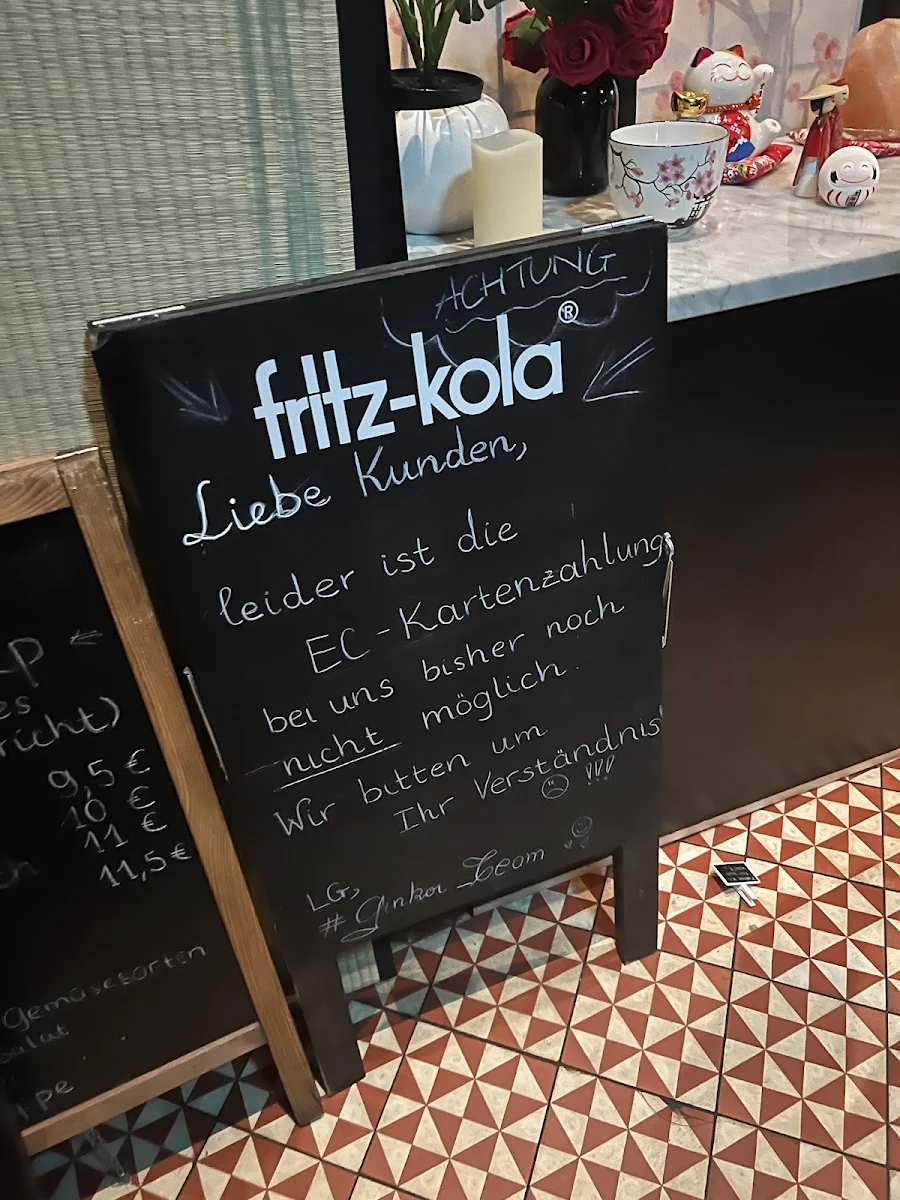 ACHTUNG
fritz-kola®
Liebe Kunden,
leider ist die
EC-Kartenzahlung
bei uns bisher noch
nicht möglich.
Wir bitten um
Ihr Verständnis!
!!!
LG,
# Ginkoi Team
9,5 €
10 €
11 €
11,5 €
Gemüsesorten